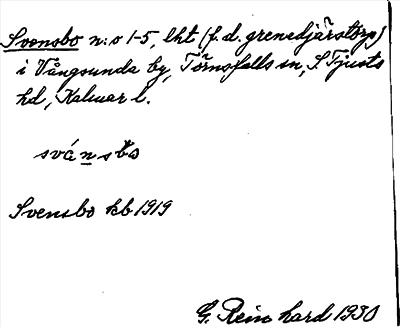 Svensbo n:o 1-5, lht (f.d. grenadjärstorp)
i Vångsunda by, Törnsfalls sn, S. Tjusts
hd, Kalmar l.
svánsbo
Svensbo kb 1919
G. Reinhard 1930